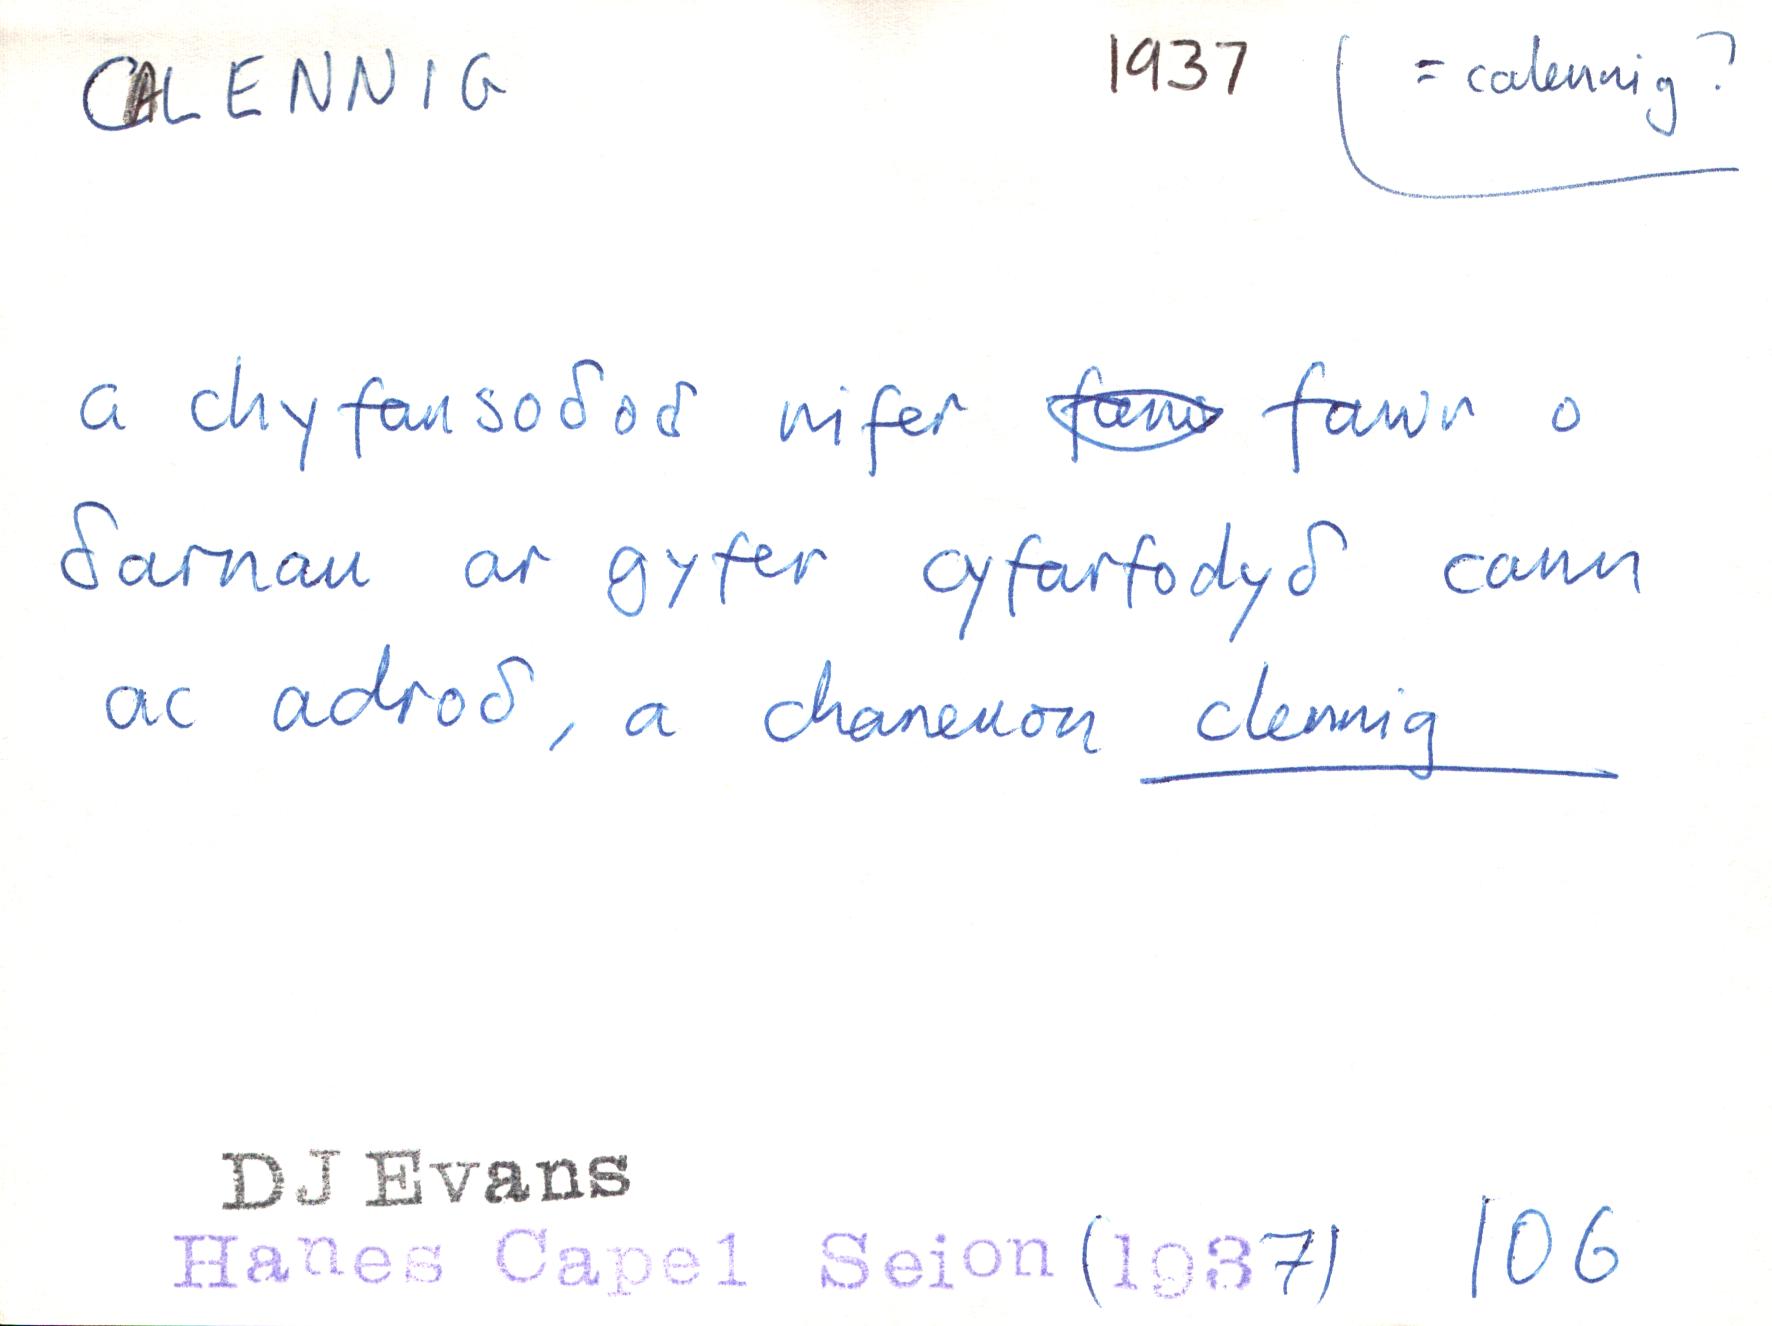 CALENNIG 1937 = calennig?
a chyfansoδoδ nifer fawr o
δarnau ar gyfer cyfarfodyδ canu
ac adroδ, a chaneuon clennig
DJ Evans
Hanes Capel Seion (1937) 106